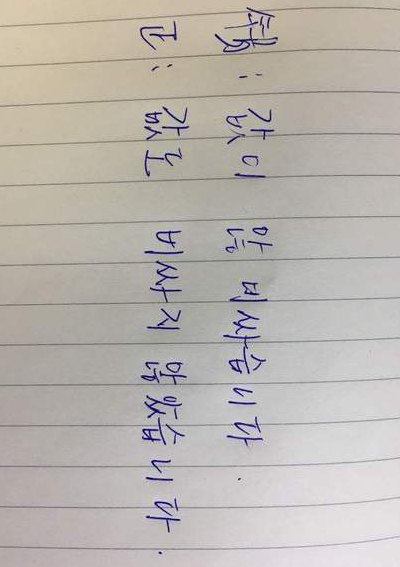 : 값이 안 비싸습니다.
고 : 값고 비싸지 않았습니다.